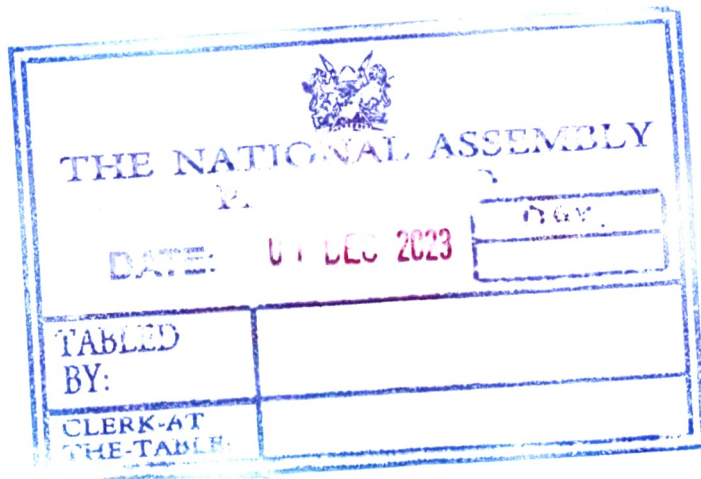 THE NATIONAL ASSEMBLY
DATE: DEC 2023
TABLED
BY:
CLERK-AT
THE-TABLE: